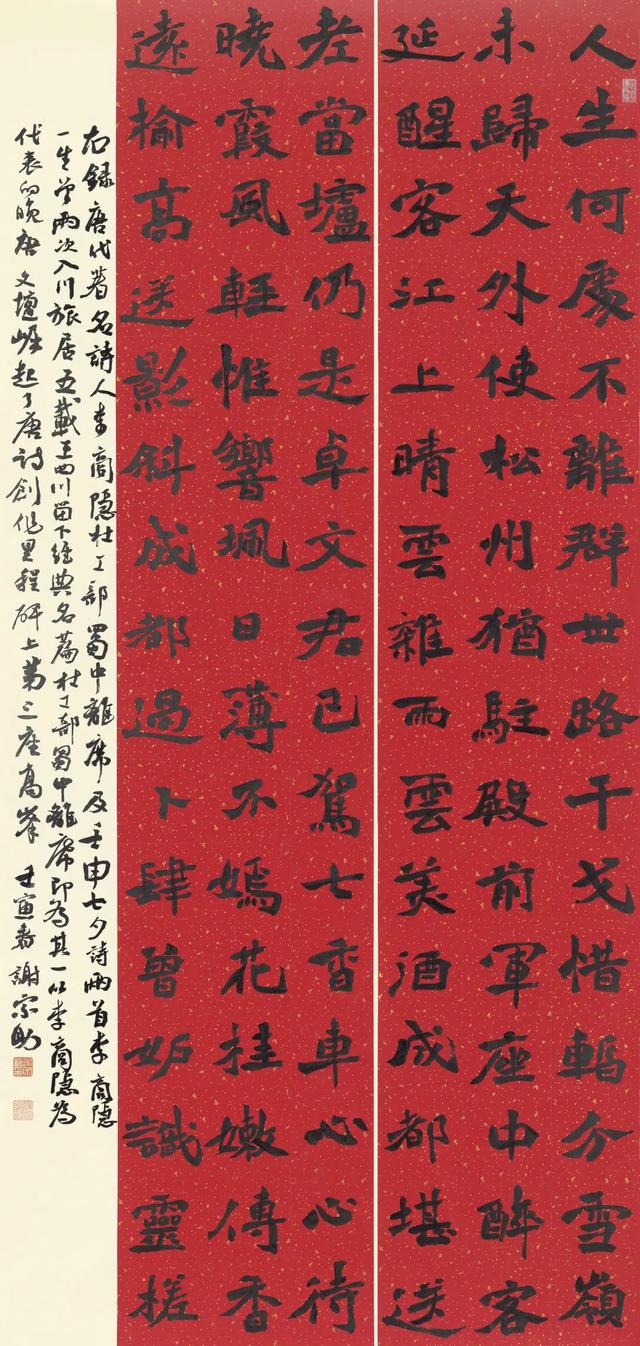 人生何處不離群世路干戈惜暫分雪嶺
未歸天外使松州猶駐殿前軍座中醉客
延醒客江上晴雲雜雨雲美酒成都堪送
老當壚仍是卓文君已駕七香車心心待
曉霞風輕惟響珮日薄不嫣花桂嫩傳香
遠榆高送影斜成都過卜肆曾妒識靈槎
右録唐代著名詩人李商隐杜工部蜀中離席及壬申七夕詩兩首李商隐
一生曾兩次入川旅居五載在四川留下經典名篇杜工部蜀中離席即為其一以李商隐為
代表的晚唐文壇崛起了唐詩創作里程碑上第三座高峯 壬寅春謝宗助